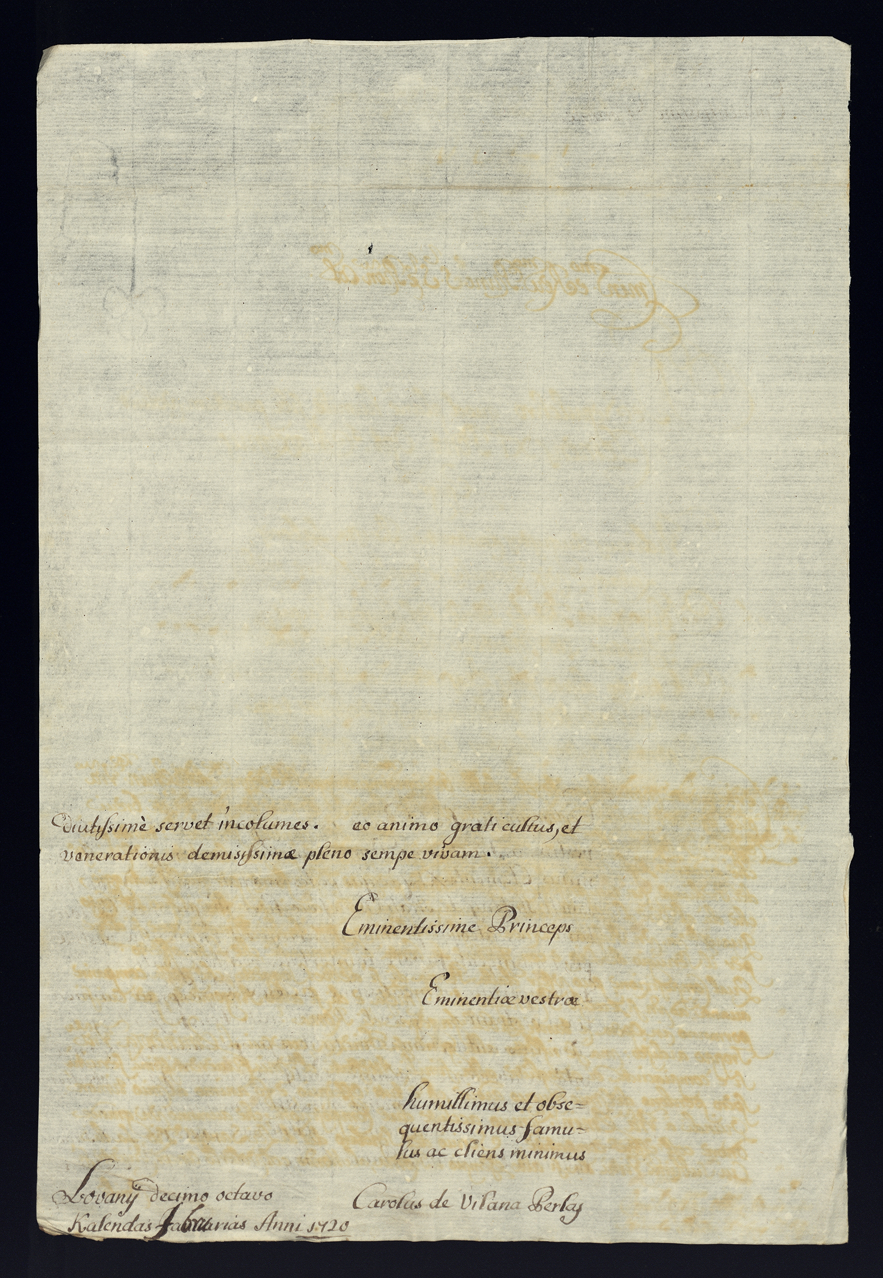 diutissimè servet incolumes. eo animo grati cultus, et
venerationis demisissimæ pleno sempe vivam.
Eminentissime Princeps
Eminentiæ vestræ
humillimus et obse=
quentissimus famu=
lus ac cliens minimus
Lovanij decimo octavo
Carolus de Vilana Perlas
Kalendas Anni 1720